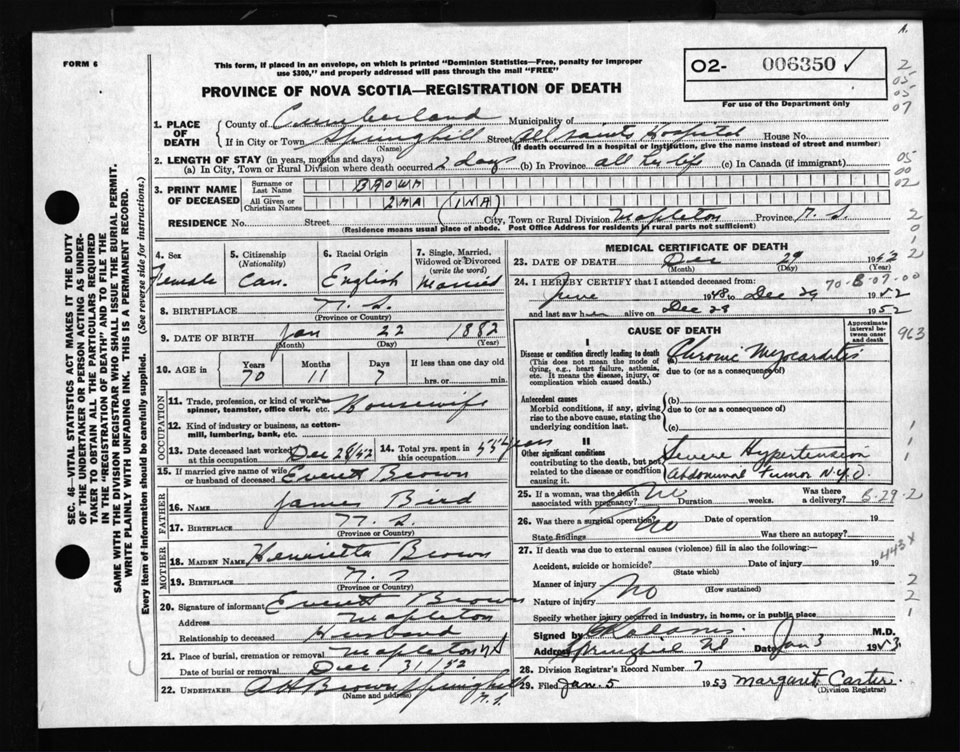 FORM 6
This form, if placed in an envelope, on which is printed "Dominion Statistics—Free, penalty for improper
use $300," and properly addressed will pass through the mail "FREE"
PROVINCE OF NOVA SCOTIA—REGISTRATION OF DEATH
O2- 006350 ✓
For use of the Department only
2
05
05
07
05
00
02
2
0
1
2
1. PLACE OF DEATH
County of Cumberland Municipality of
If in City or Town Springhill Street All Saints Hospital House No.
(Name) (If death occurred in a hospital or institution, give the name instead of street and number)
2. LENGTH OF STAY (in years, months and days)
(a) In City, Town or Rural Division where death occurred 2 days (b) In Province all her life (c) In Canada (if immigrant)
3. PRINT NAME OF DECEASED
Surname or Last Name BROWN
All Given or Christian Names INA (INA)
RESIDENCE No. Street City, Town or Rural Division Mapleton Province N. S.
(Residence means usual place of abode. Post Office Address for residents in rural parts not sufficient)
SEC. 46—VITAL STATISTICS ACT MAKES IT THE DUTY
OF THE UNDERTAKER OR PERSON ACTING AS UNDER-
TAKER TO OBTAIN ALL THE PARTICULARS REQUIRED
IN THE "REGISTRATION OF DEATH" AND TO FILE THE
SAME WITH THE DIVISION REGISTRAR WHO SHALL ISSUE THE BURIAL PERMIT.
WRITE PLAINLY WITH UNFADING INK. THIS IS A PERMANENT RECORD.
Every item of information should be carefully supplied. (See reverse side for instructions.)
4. Sex Female
5. Citizenship (Nationality) Can.
6. Racial Origin English
7. Single, Married, Widowed or Divorced (write the word) Married
8. BIRTHPLACE N. S.
(Province or Country)
9. DATE OF BIRTH Jan 22 1882
(Month) (Day) (Year)
10. AGE in Years 70 Months 11 Days 7 If less than one day old hrs. or min.
OCCUPATION
11. Trade, profession, or kind of work as spinner, teamster, office clerk, etc. Housewife
12. Kind of industry or business, as cotton-mill, lumbering, bank, etc.
13. Date deceased last worked at this occupation Dec 28/52 14. Total yrs. spent in this occupation 55 years
15. If married give name of wife or husband of deceased Everett Brown
FATHER
16. Name James Bird
17. Birthplace N. S.
(Province or Country)
MOTHER
18. Maiden Name Henrietta Brown
19. Birthplace N. S
(Province or Country)
20. Signature of informant Everett Brown
Address Mapleton
Relationship to deceased Husband
21. Place of burial, cremation or removal Mapleton NS
Date of burial or removal Dec 31/52
22. Undertaker A H Brown Springhill
(Name and address) N.S.
MEDICAL CERTIFICATE OF DEATH
23. DATE OF DEATH Dec 29 1952
(Month) (Day) (Year)
24. I HEREBY CERTIFY that I attended deceased from: 70-B-07-00
June 1948 to Dec 29 1952
and last saw her alive on Dec 28 1952
CAUSE OF DEATH
Approximate interval between onset and death
963
I
Disease or condition directly leading to death
(This does not mean the mode of dying, e.g., heart failure, asthenia, etc. It means the disease, injury, or complication which caused death.)
(a) Chronic Myocarditis
due to (or as a consequence of)
Antecedent causes
Morbid conditions, if any, giving rise to the above cause, stating the underlying condition last.
(b)
due to (or as a consequence of)
(c)
II
Other significant conditions contributing to the death, but not related to the disease or condition causing it.
Severe Hypertension
Abdominal Tumor N.Y.D
1
1
1
25. If a woman, was the death associated with pregnancy? No Duration weeks. Was there a delivery? 6-29-2
26. Was there a surgical operation? No Date of operation 19
State findings Was there an autopsy?
27. If death was due to external causes (violence) fill in also the following:—
443 X
Accident, suicide or homicide? Date of injury 19
(State which)
Manner of injury No
(How sustained)
Nature of injury
Specify whether injury occurred in industry, in home, or in public place
2
2
1
Signed by M.D.
Address Springhill NS Date Jan 3 1953.
28. Division Registrar's Record Number 7
29. Filed Jan. 5 1953 Margaret Carter.
(Division Registrar)